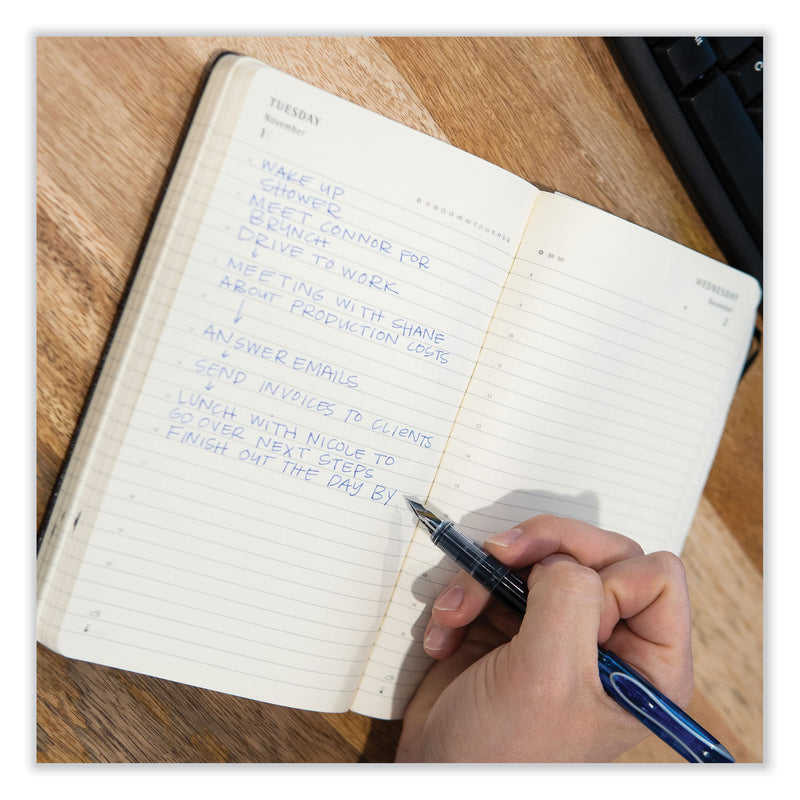 TUESDAY
November
1
WAKE UP
SHOWER
MEET CONNOR FOR
BRUNCH
DRIVE TO WORK
↓
MEETING WITH SHANE
ABOUT PRODUCTION COSTS
↓
ANSWER EMAILS
↓
SEND INVOICES TO CLIENTS
↓
LUNCH WITH NICOLE TO
GO OVER NEXT STEPS
FINISH OUT THE DAY BY
WEDNESDAY
November
2
8
9
10
12
13
14
15
18
19
20